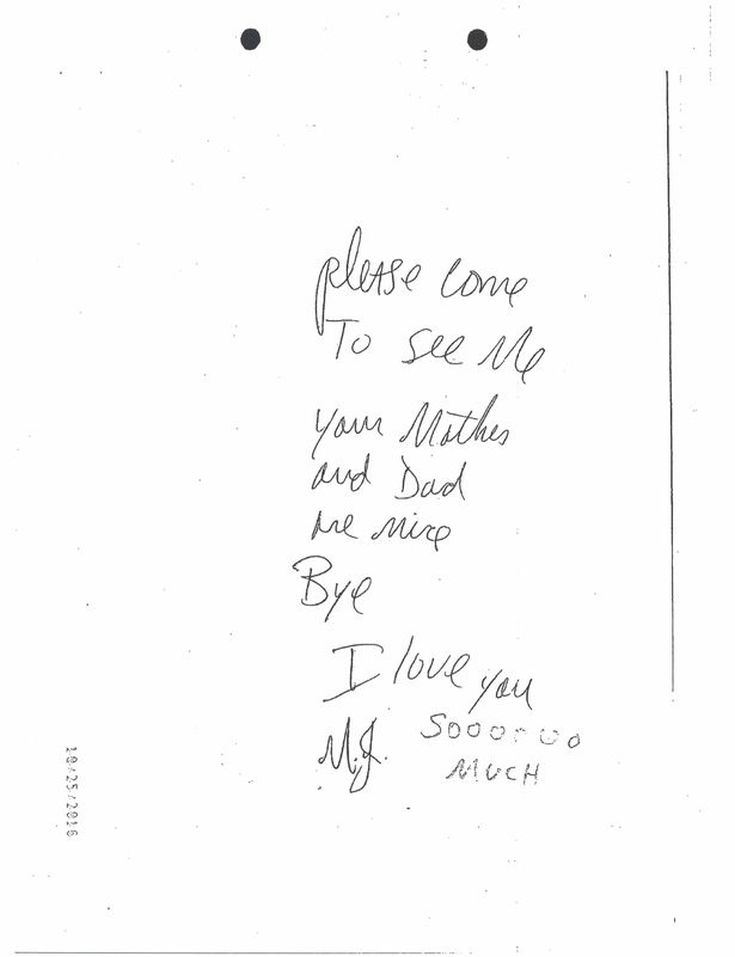 please come
To see Me
your Mother
and Dad
are nice
Bye
I love you
Soooooo
MUCH
M.J.
10/25/2016